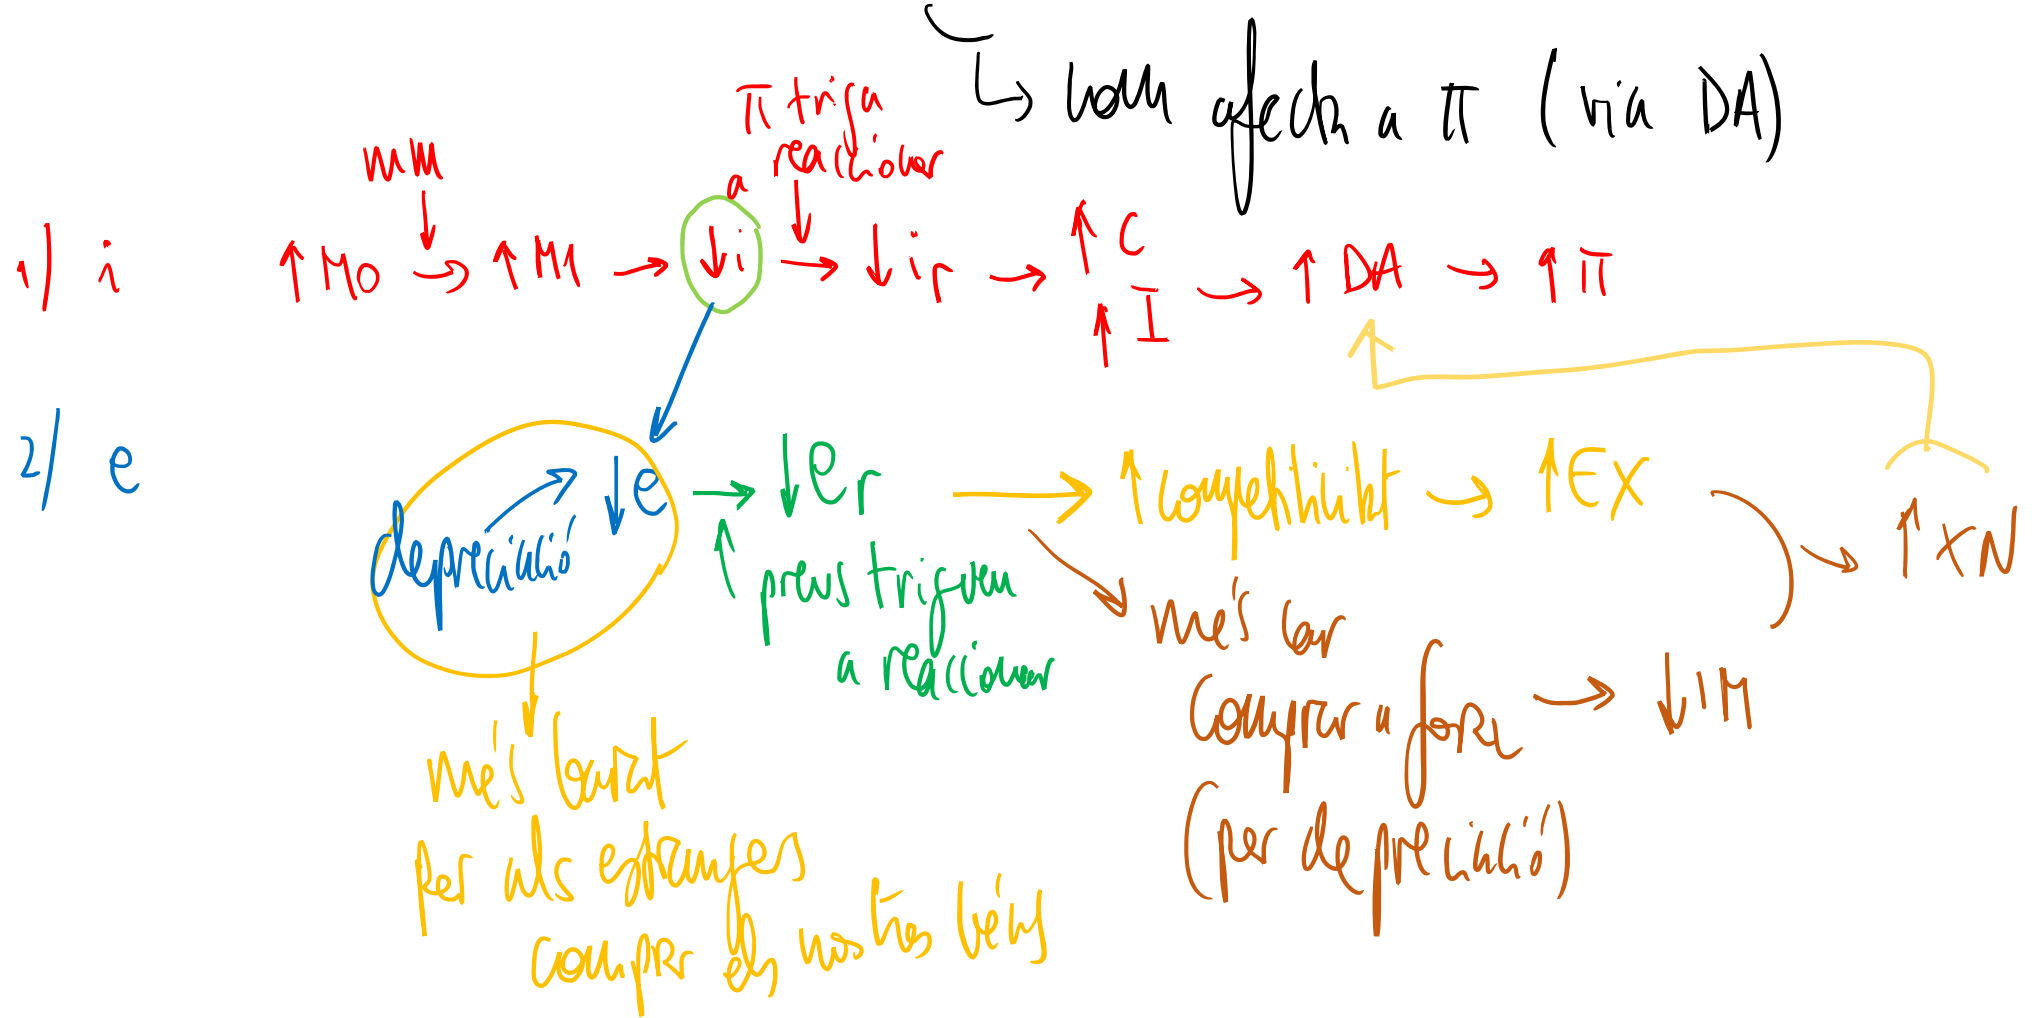 ↳ com afecta a π (via DA)
π triga
a reaccionar
mm
1) i ↑M0 → ↑M1 → ↓i → ↓ir → ↑C ↑I → ↑DA → ↑π
2) e
depreciació ↓e → ↓er → ↑competitivitat → ↑EX
↑XN
preus triguen
a reaccionar
més car
comprar a fora → ↓IM
(per depreciació)
més barat
per als estrangers
comprar els nostres béns